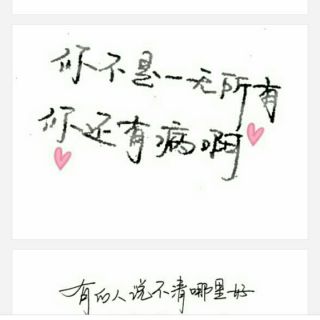 你不是一无所有
你还有病啊
有的人说不清哪里好